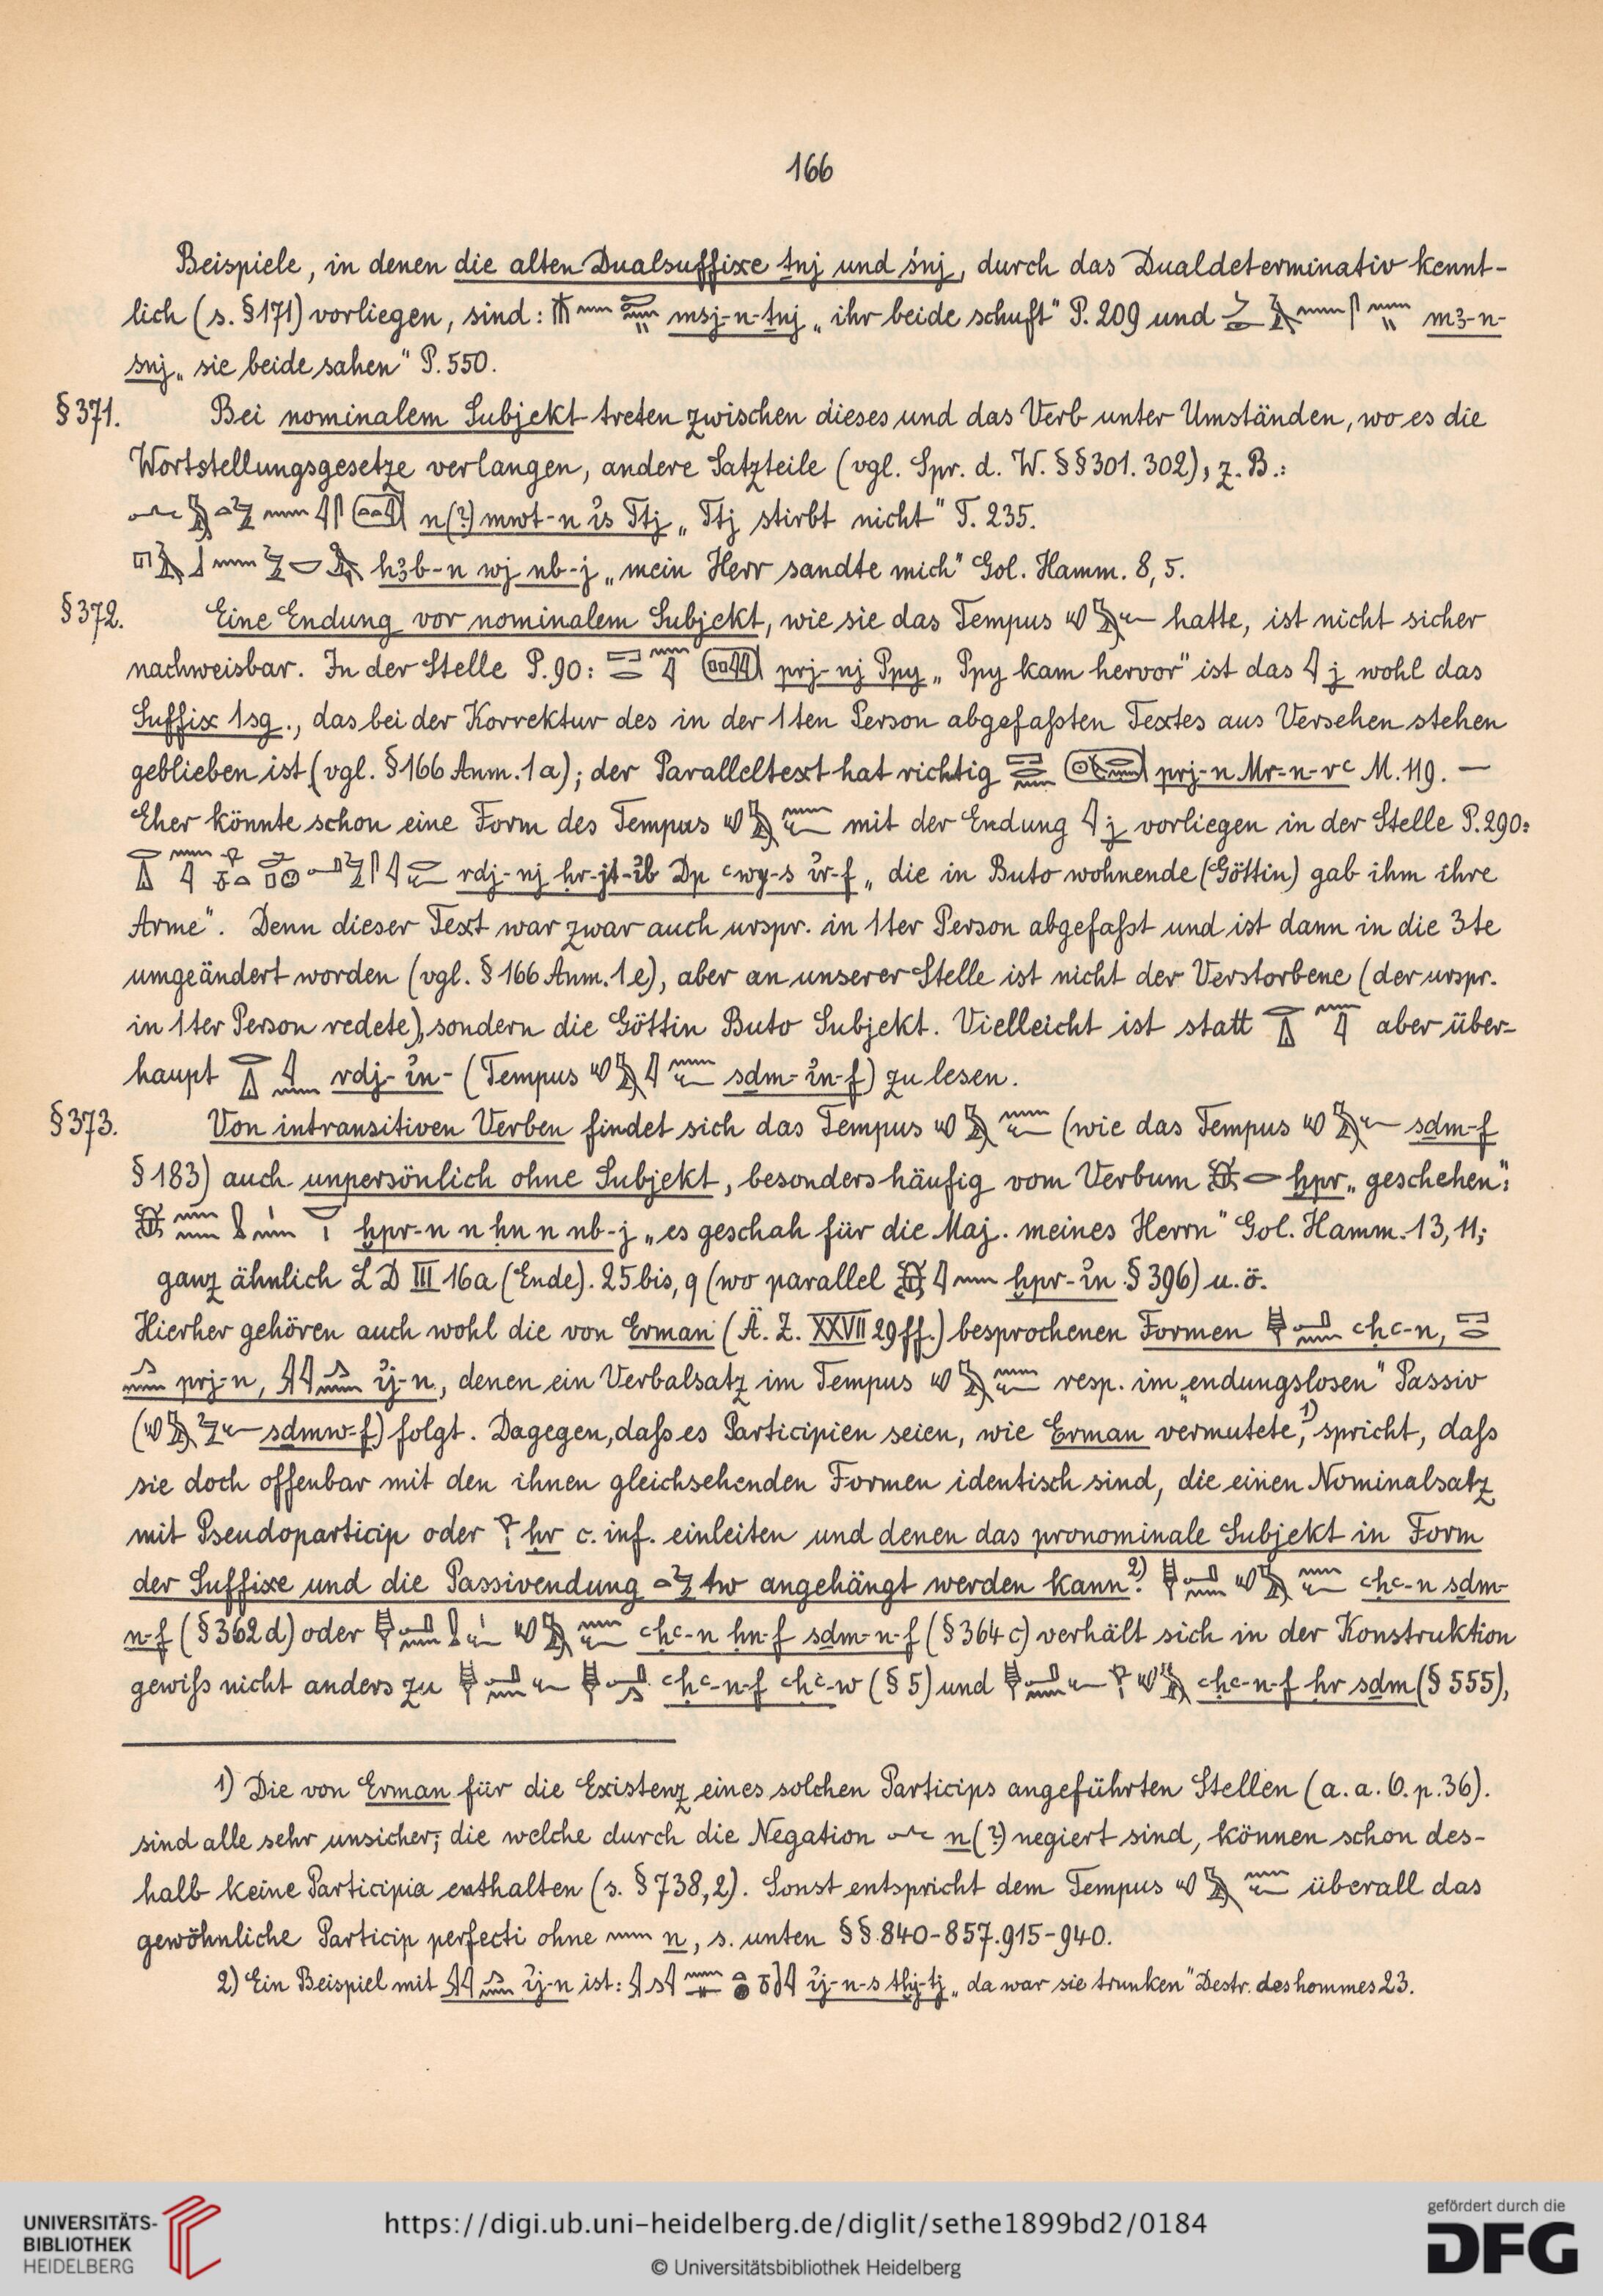 166
Beispiele, in denen die alten Dualsuffixe ṯnj und śnj, durch das Dualdeterminativ kennt-
lich (s. §171) vorliegen, sind: msj-n-ṯnj „ihr beide schuft" P. 209 und mȝ-n-
snj „sie beide sahen" P. 550.
§ 371. Bei nominalem Subjekt treten zwischen dieses und das Verb unter Umständen, wo es die
Wortstellungsgesetze verlangen, andere Satzteile (vgl. Spr. d. W. §§ 301. 302), z. B.:
n(?) mwt-n ỉs Ttj „Ttj stirbt nicht" T. 235.
hȝb-n wj nb-j „mein Herr sandte mich" Gol. Hamm. 8, 5.
§ 372. Eine Endung vor nominalem Subjekt, wie sie das Tempus hatte, ist nicht sicher
nachweisbar. In der Stelle P. 90: prj-nj Ppy „Ppy kam hervor" ist das j wohl das
Suffix 1sg., das bei der Korrektur des in der 1ten Person abgefaßten Textes aus Versehen stehen
geblieben ist (vgl. § 166 Anm. 1a); der Paralleltext hat richtig prj-n Mr-n-rꜥ M. 119. —
Eher könnte schon eine Form des Tempus mit der Endung j vorliegen in der Stelle P. 290:
rdj-nj ḥr-jt-ỉb Dp ꜥwy-s ỉr-f „die in Buto wohnende (Göttin) gab ihm ihre
Arme". Denn dieser Text war zwar auch urspr. in 1ter Person abgefaßt und ist dann in die 3te
umgeändert worden (vgl. § 166 Anm. 1e), aber an unserer Stelle ist nicht der Verstorbene (der urspr.
in 1ter Person redete), sondern die Göttin Buto Subjekt. Vielleicht ist statt aber über-
haupt rdj-ỉn- (Tempus sḏm-ỉn-f) zu lesen.
§ 373. Von intransitiven Verben findet sich das Tempus (wie das Tempus sḏm-f
§ 183) auch unpersönlich ohne Subjekt, besonders häufig vom Verbum ḫpr „geschehen":
ḫpr-n n ḥn n nb-j „es geschah für die Maj. meines Herrn" Gol. Hamm. 13, 11;
ganz ähnlich LD III 16a (Ende). 25 bis, q (wo parallel ḫpr-ỉn § 396) u. ö.
Hierher gehören auch wohl die von Erman (Ä. Z. XXVII 29 ff.) besprochenen Formen ꜥḥꜥ-n,
prj-n, ỉj-n, denen ein Verbalsatz im Tempus resp. im „endungslosen" Passiv
(sḏmw-f) folgt. Dagegen, daß es Participien seien, wie Erman vermutete,¹⁾ spricht, daß
sie doch offenbar mit den ihnen gleichsehenden Formen identisch sind, die einen Nominalsatz
mit Pseudoparticip oder ḥr c. inf. einleiten und denen das pronominale Subjekt in Form
der Suffixe und die Passivendung tw angehängt werden kann.²⁾ ꜥḥꜥ-n sḏm-
n-f (§ 362 d) oder ꜥḥꜥ-n ḥn-f sḏm-n-f (§ 364 c) verhält sich in der Konstruktion
gewiß nicht anders zu ꜥḥꜥ-n-f ꜥḥꜥ-w (§ 5) und ꜥḥꜥ-n-f ḥr sḏm (§ 555),
1) Die von Erman für die Existenz eines solchen Particips angeführten Stellen (a. a. O. p. 36).
sind alle sehr unsicher; die welche durch die Negation n(?) negiert sind, können schon des-
halb keine Participia enthalten (s. § 738, 2). Sonst entspricht dem Tempus überall das
gewöhnliche Particip perfecti ohne n, s. unten §§ 840-857. 915-940.
2) Ein Beispiel mit ỉj-n ist: ỉj-n-s tḫj-tj „da war sie trunken" Destr. des hommes 23.
UNIVERSITÄTS-
BIBLIOTHEK
HEIDELBERG
https://digi.ub.uni-heidelberg.de/diglit/sethe1899bd2/0184
© Universitätsbibliothek Heidelberg
gefördert durch die
DFG